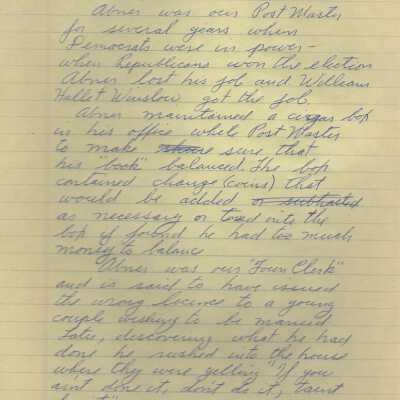 Abner was our Post Master
for several years when
Democrats were in power -
when Republicans won the election
Abner lost his job and William
Hallet Winslow got the job.
Abner maintained a cigar box
in his office while Post Master
to make sure that
his "book" balanced. The box
contained change (coins) that
would be added or subtracted
as necessary or toxd into the
box if found he had too much
money to balance
Abner was our "Town Clerk"
and is said to have issued
the wrong licence to a young
couple wishing to be married
Later, discovering what he had
done he rushed into the house
where they were yelling "If you
ain't done it, don't do it, taint